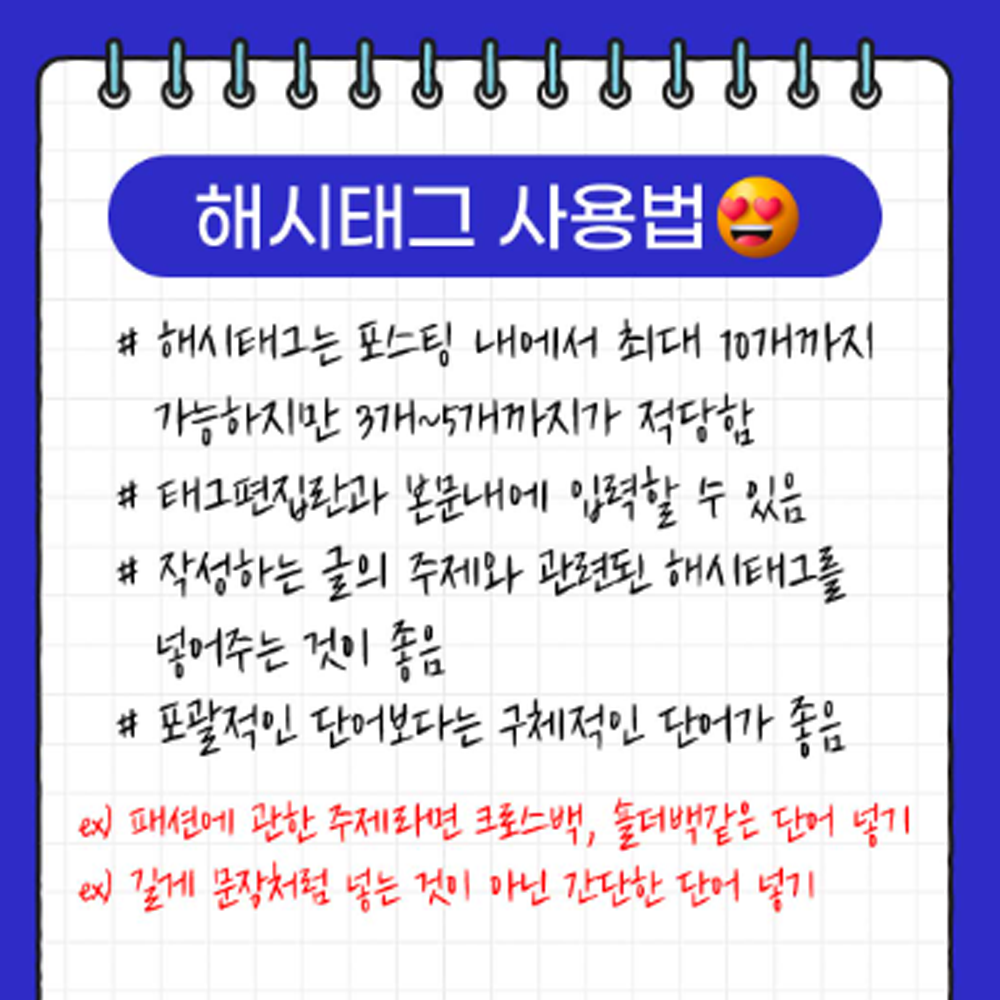 해시태그 사용법😍
# 해시태그는 포스팅 내에서 최대 10개까지
가능하지만 3개~5개까지가 적당함
# 태그편집란과 본문내에 입력할 수 있음
# 작성하는 글의 주제와 관련된 해시태그를
넣어주는 것이 좋음
# 포괄적인 단어보다는 구체적인 단어가 좋음
ex) 패션에 관한 주제라면 크로스백, 숄더백같은 단어 넣기
ex) 길게 문장처럼 넣는 것이 아닌 간단한 단어 넣기